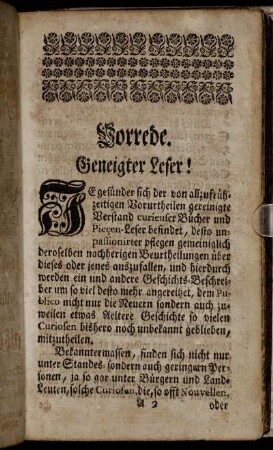 Vorrede.
Geneigter Leser!
JE gesünder sich der von allzufrüh-
zeitigen Vorurtheilen gereinigte
Verstand curieuser Bücher und
Pieçen-Leser befindet, desto un-
passionirter pflegen gemeiniglich
deroselben nachherigen Beurtheilungen über
dieses oder jenes auszufallen, und hierdurch
werden ein und andere Geschichts-Beschrei-
ber um so viel desto mehr angereitzet, dem Pu-
blico nicht nur die Neuen sondern auch zu-
weilen etwas Aeltere Geschichte so vielen
Curiosen bishero noch unbekannt geblieben,
mitzutheilen.
Bekanntermassen, finden sich nicht nur
unter Standes- sondern auch geringern Per-
sonen, ja so gar unter Bürgern und Land-
Leuten, solche Curiosen, die, so offt Nouvellen,
A 2 oder